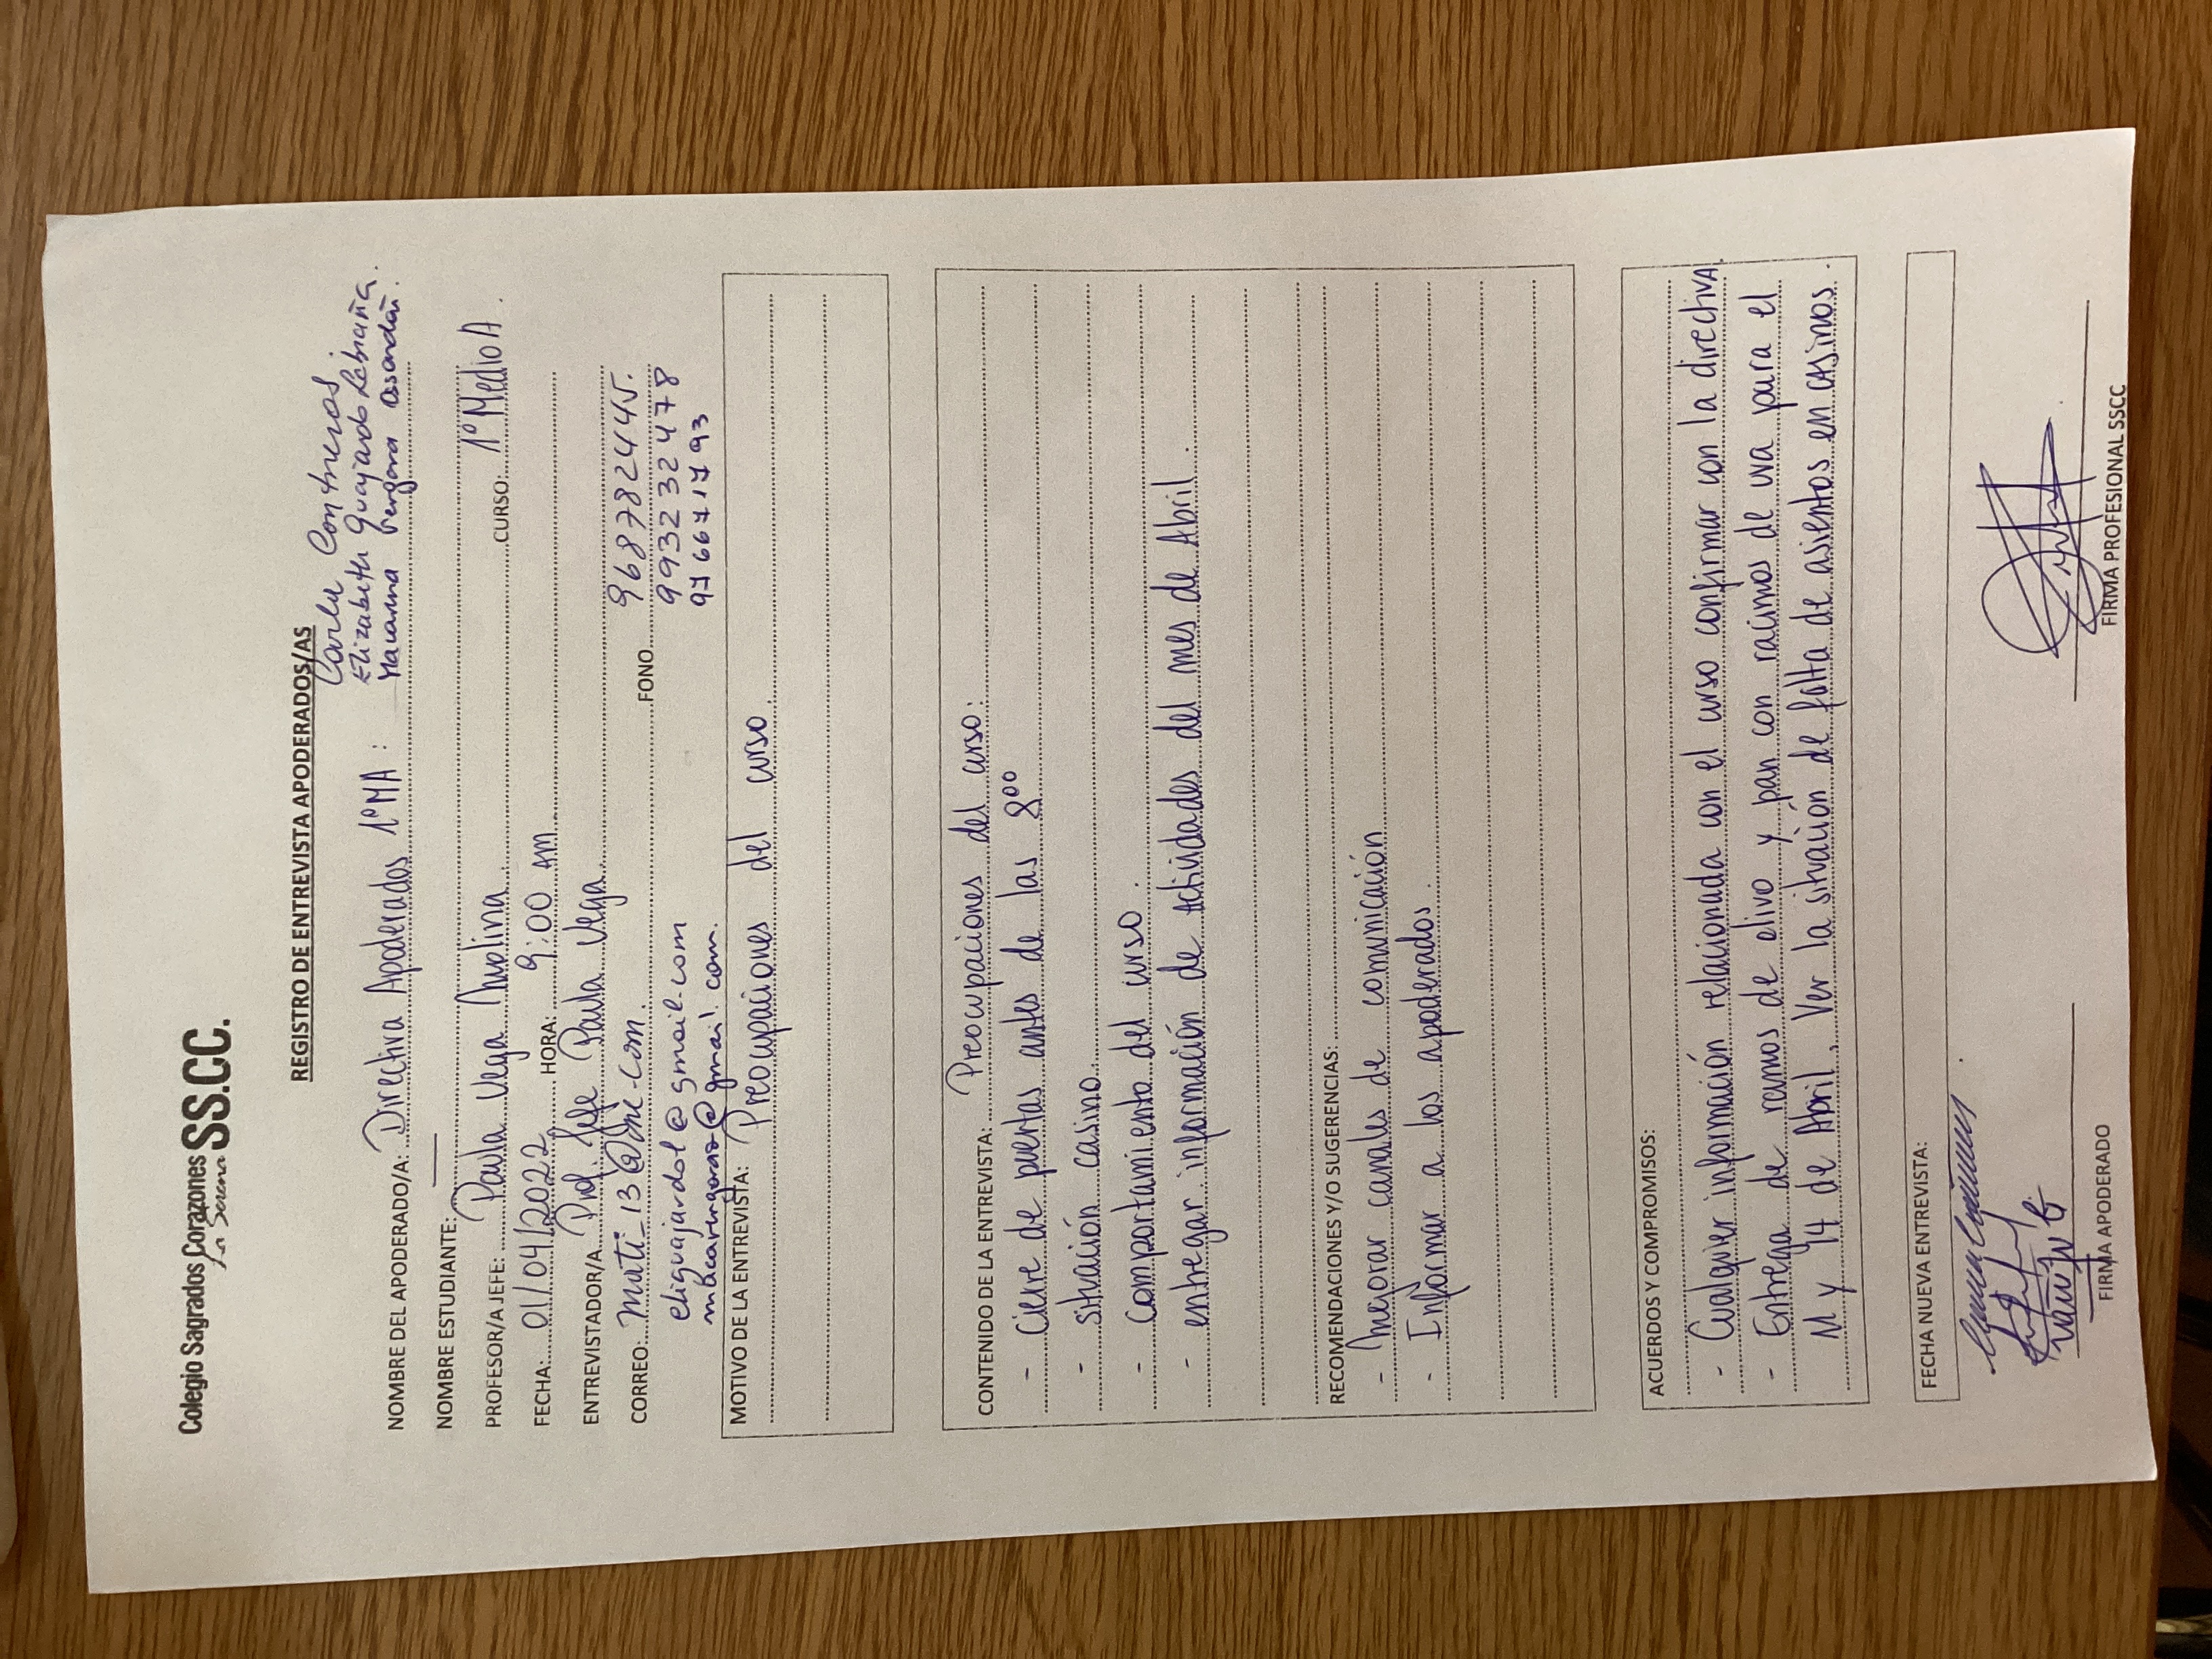 Colegio Sagrados Corazones SS.CC.
La Serena
REGISTRO DE ENTREVISTA APODERADOS/AS
Carla Contreras
Elizabeth Guajardo
NOMBRE DEL APODERADO/A: Directiva Apoderados 1°MA : Macarena Vergara
NOMBRE ESTUDIANTE:
PROFESOR/A JEFE: Paula Vega Molina. CURSO: 1° Medio A.
FECHA: 01/04/2022 HORA: 9:00 AM
ENTREVISTADOR/A Prof Jefe Paula Vega.
CORREO: FONO 968782445.
eliguajardol@gmail.com 993232478
976671793
MOTIVO DE LA ENTREVISTA: Preocupaciones del curso.
CONTENIDO DE LA ENTREVISTA: Preocupaciones del curso:
- Cierre de puertas antes de las 8°°
- situación casino.
- Comportamiento del curso.
- entregar información de actividades del mes de Abril.
RECOMENDACIONES Y/O SUGERENCIAS:
- Mejorar canales de comunicación
- Informar a los apoderados.
ACUERDOS Y COMPROMISOS:
- Cualquier información relacionada con el curso confirmar con la directiva.
- Entrega de ramos de olivo y pan con racimos de uva para el
11 y 14 de Abril. Ver la situación de falta de asientos en casinos.
FECHA NUEVA ENTREVISTA:
FIRMA APODERADO FIRMA PROFESIONAL SSCC